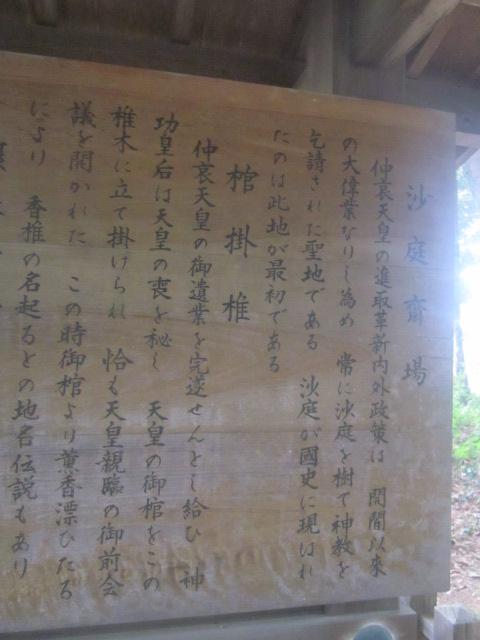 沙庭斎場
仲哀天皇の進取革新内外政策は 開闢以来
の大偉業なりし為め 常に沙庭を樹て神教を
乞請された聖地である 沙庭が國史に現はれ
たのは此地が最初である
棺掛椎
仲哀天皇の御遺業を完遂せんとし給ひ 神
功皇后は天皇の喪を秘し 天皇の御棺をこの
椎木に立て掛けられ 恰も天皇親臨の御前会
議を開かれた この時御棺より薫香漂ひたる
により 香椎の名起るとの地名伝説もあり